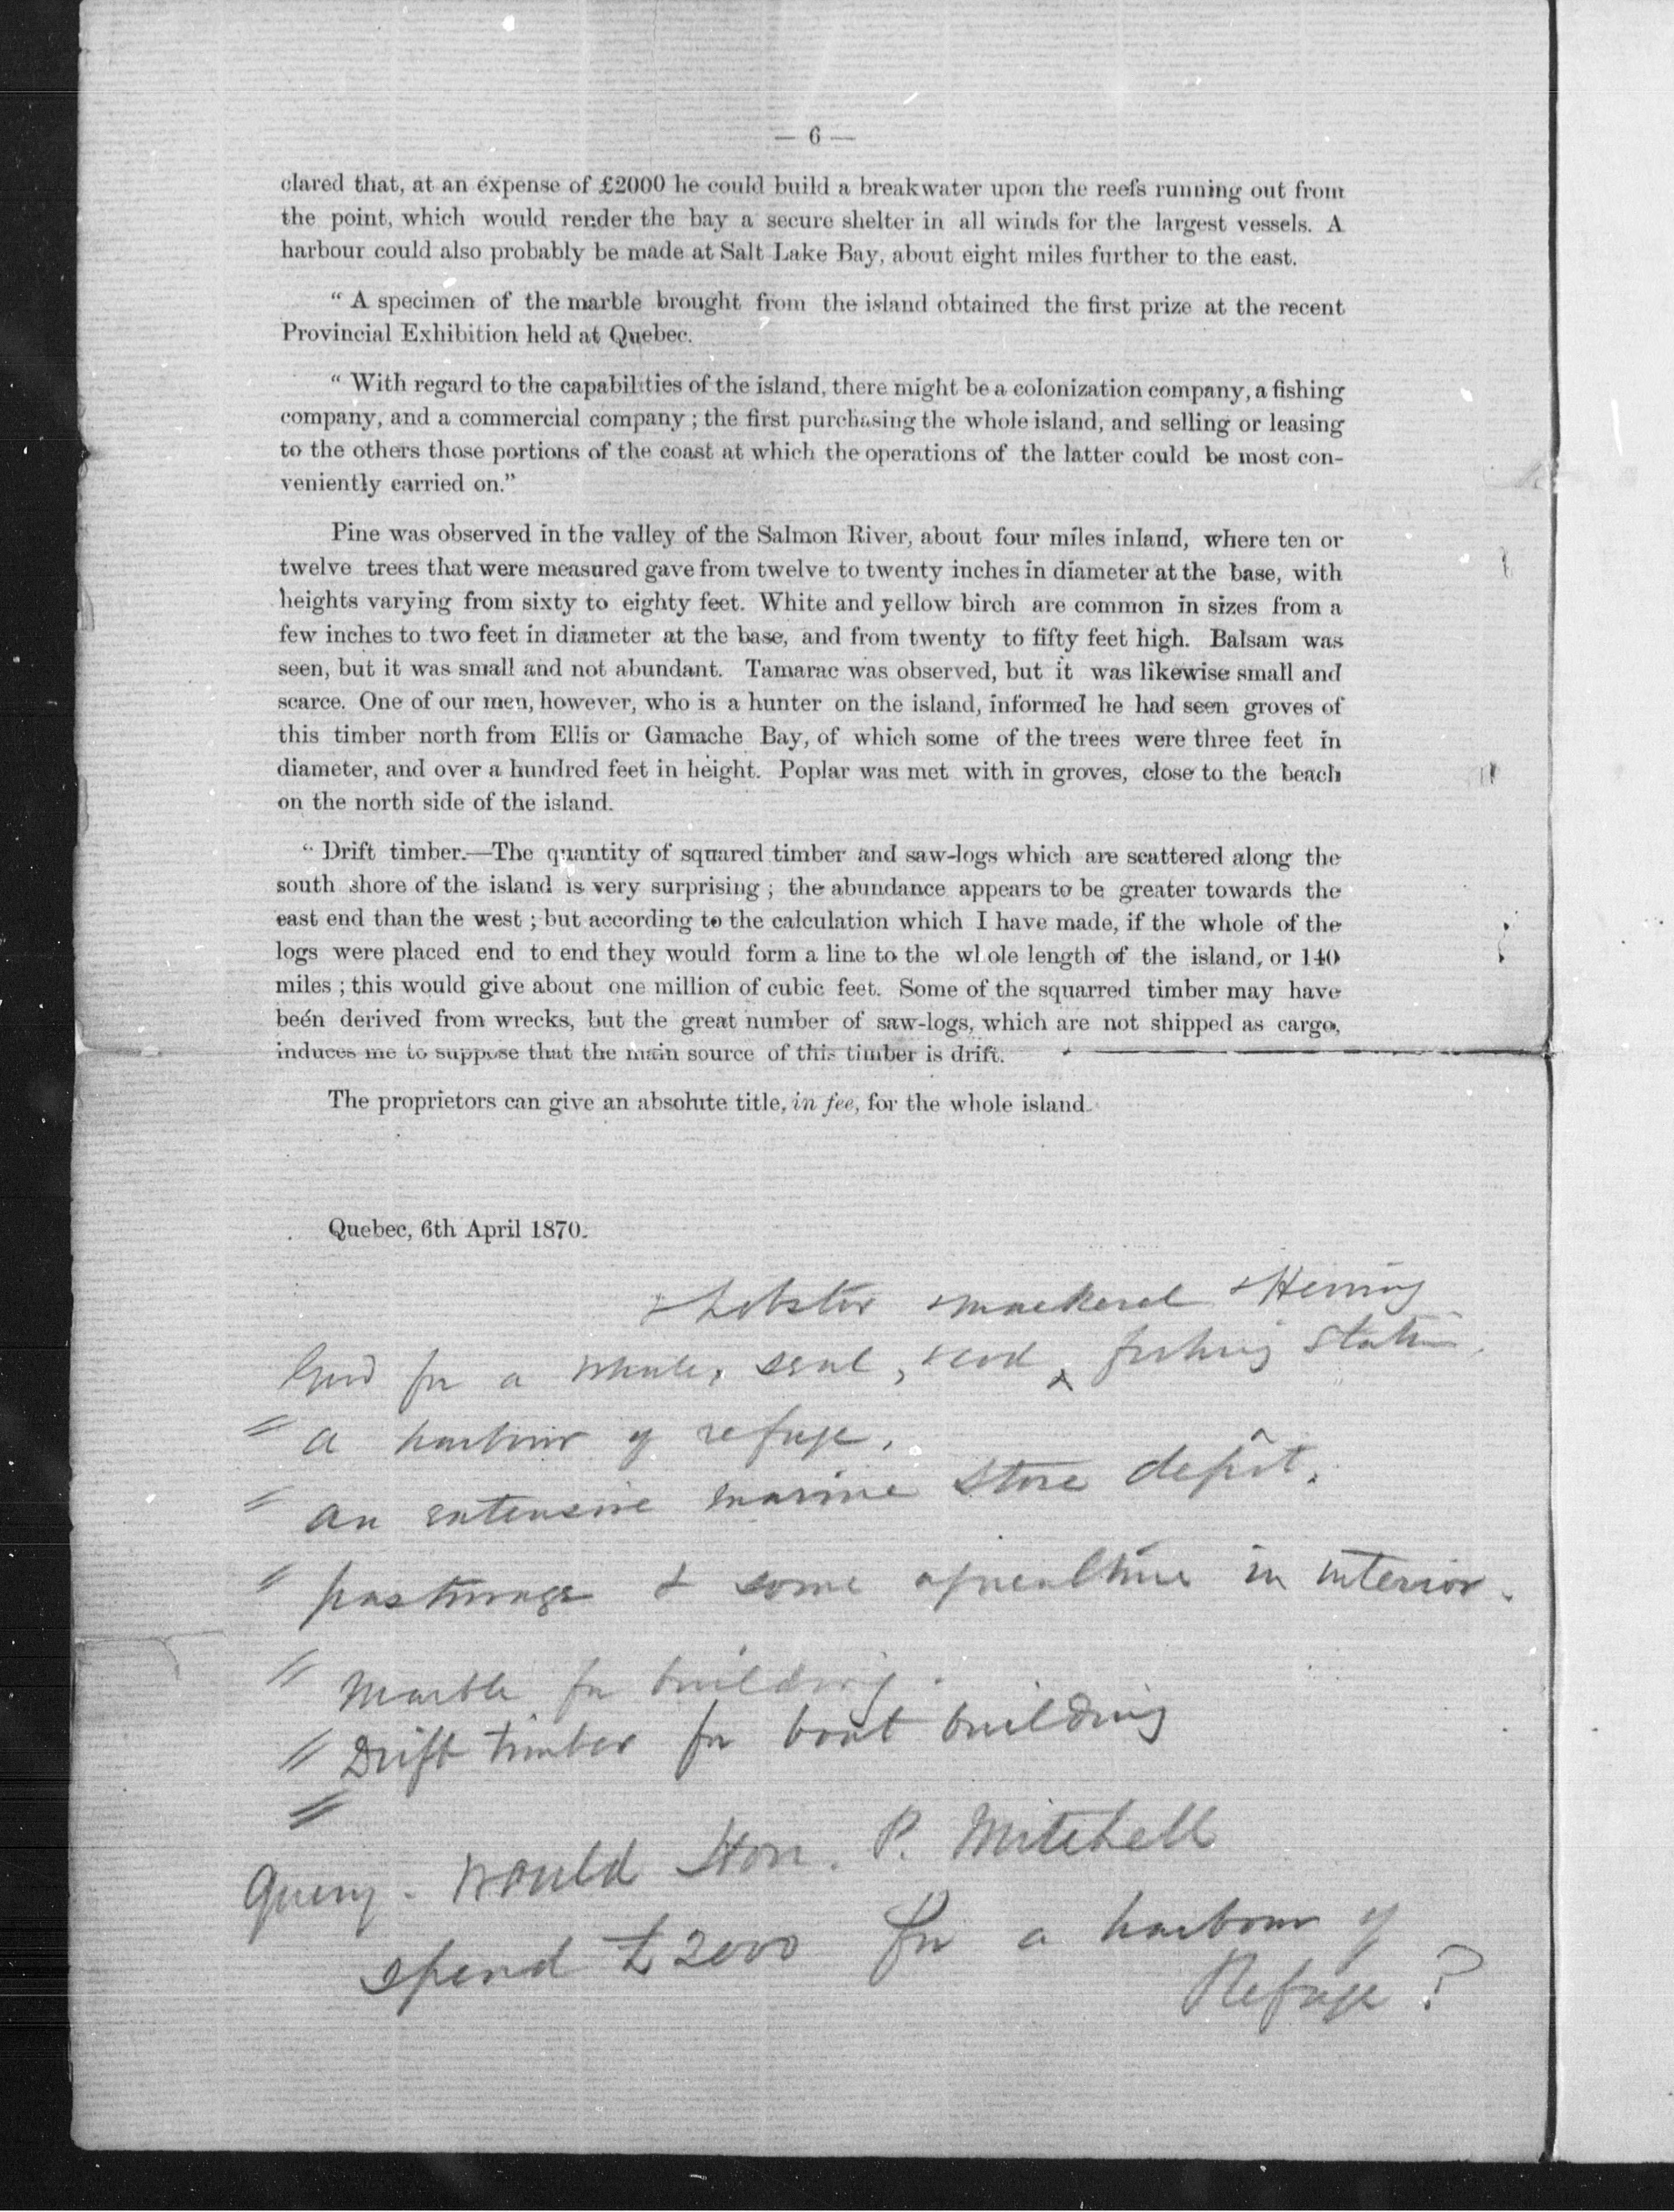 — 6 —
clared that, at an expense of £2000 he could build a breakwater upon the reefs running out from
the point, which would render the bay a secure shelter in all winds for the largest vessels. A
harbour could also probably be made at Salt Lake Bay, about eight miles further to the east.
“ A specimen of the marble brought from the island obtained the first prize at the recent
Provincial Exhibition held at Quebec.
“ With regard to the capabilities of the island, there might be a colonization company, a fishing
company, and a commercial company ; the first purchasing the whole island, and selling or leasing
to the others those portions of the coast at which the operations of the latter could be most con-
veniently carried on.”
Pine was observed in the valley of the Salmon River, about four miles inland, where ten or
twelve trees that were measured gave from twelve to twenty inches in diameter at the base, with
heights varying from sixty to eighty feet. White and yellow birch are common in sizes from a
few inches to two feet in diameter at the base, and from twenty to fifty feet high. Balsam was
seen, but it was small and not abundant. Tamarac was observed, but it was likewise small and
scarce. One of our men, however, who is a hunter on the island, informed he had seen groves of
this timber north from Ellis or Gamache Bay, of which some of the trees were three feet in
diameter, and over a hundred feet in height. Poplar was met with in groves, close to the beach
on the north side of the island.
“ Drift timber.—The quantity of squared timber and saw-logs which are scattered along the
south shore of the island is very surprising ; the abundance appears to be greater towards the
east end than the west ; but according to the calculation which I have made, if the whole of the
logs were placed end to end they would form a line to the whole length of the island, or 140
miles ; this would give about one million of cubic feet. Some of the squarred timber may have
beén derived from wrecks, but the great number of saw-logs, which are not shipped as cargo,
induces me to suppose that the main source of this timber is drift.
The proprietors can give an absolute title, in fee, for the whole island.
Quebec, 6th April 1870.
+ Lobster + mackerel + Herring
Good for a whale, seal, + cod ^ fishing station.
" a harbour of refuge.
" an extensive marine store depôt.
" pasturage & some agriculture in interior.
" Marble for building.
" Drift timber for boat building
"
Query - Would Hon. P. Mitchell
spend £2000 for a harbour of
Refuge ?